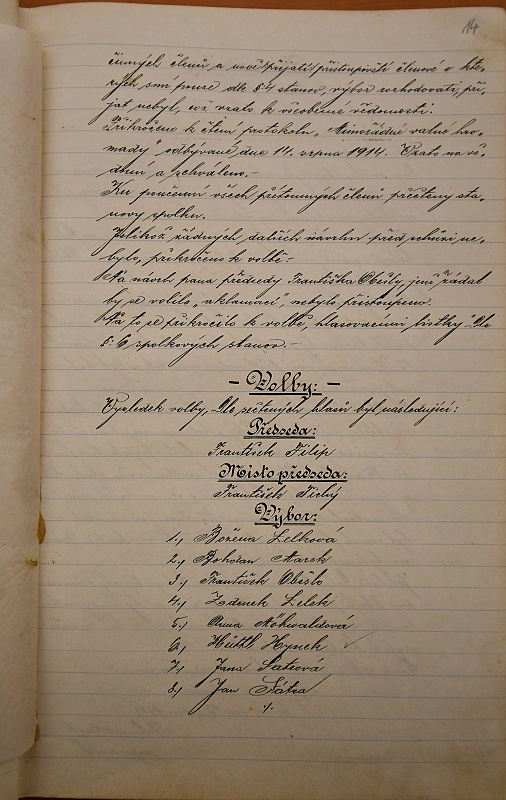 14
činných členů a nově přijatí přistoupivší členové o kte-
rých smí pouze dle § 4 stanov, výbor rozhodovati, při-
jat nebyl, což vzato k všeobecné vědomosti.
Přikročeno k čtení protokolu „Mimořádné valné hro-
mady" odbývané dne 14. srpna 1914. Vzato na vě-
domí a schváleno.-
Ku poučení všech přítomných členů přečteny sta-
novy spolku.
Jelikož žádných dalších návrhů před schůzí ne-
bylo, přikročeno k volbě:-
Na návrh pana předsedy Františka Obišly, jenž žádal
by se volilo „aklamací", nebylo přistoupeno.
Na to se přikročilo k volbě, hlasovacími lístky dle
§. 6. spolkových stanov.-
- Volby: -
Výsledek volby, dle sečtených hlasů byl následující:
Předseda:
František Filip
Místopředseda:
František Tichý
Výbor:
1., Božena Lelková
2., Bohdan Marek
3., František Obišlo
4., Zdenek Lelek
5., Anna Möhwaldová
6., Hüttl Hynek
7., Jana Šatrová
8., Jan Šátra
./.